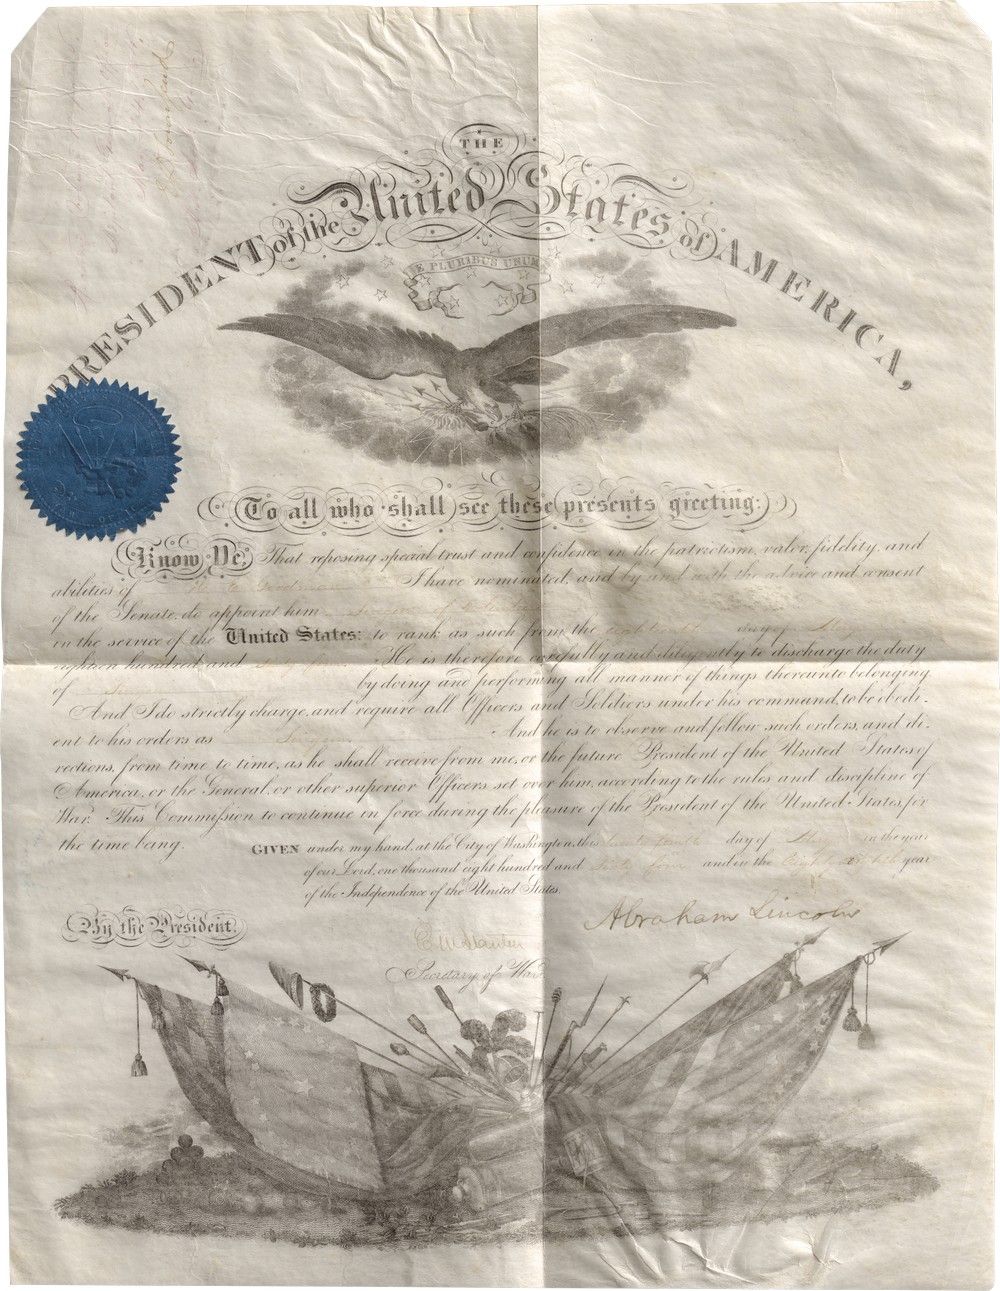 THE
PRESIDENT of the United States of AMERICA,
E PLURIBUS UNUM
To all who shall see these presents greeting:
Know Ye, That reposing special trust and confidence in the patriotism, valor, fidelity, and
abilities of I have nominated, and by and with the advice and consent
of the Senate, do appoint him Surgeon of Volunteers
in the service of the United States: to rank as such from the day of
eighteen hundred and sixty four He is therefore carefully and diligently to discharge the duty
of Surgeon by doing and performing all manner of things thereunto belonging
And I do strictly charge, and require all Officers and Soldiers under his command, to be obedi-
ent to his orders as Surgeon And he is to observe and follow such orders, and di-
rections, from time to time, as he shall receive from me, or the future President of the United States of
America, or the General, or other superior Officers set over him, according to the rules and discipline of
War. This Commission to continue in force during the pleasure of the President of the United States, for
the time being.
GIVEN under my hand, at the City of Washington, this day of May in the year
of our Lord, one thousand eight hundred and sixty four and in the Eighty eighth year
of the Independence of the United States.
By the President,
Abraham Lincoln
E M Stanton
Secretary of War.